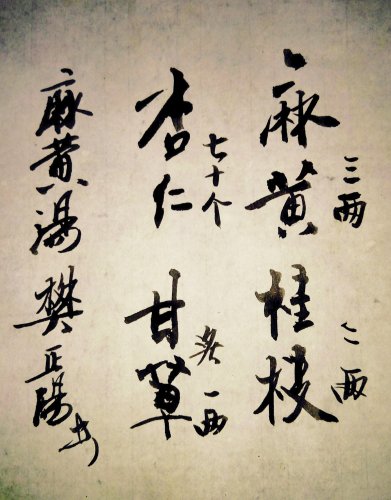 麻黄 三两 桂枝 二两
杏仁 七十个 甘草 炙 一两
麻黄汤 樊正阳